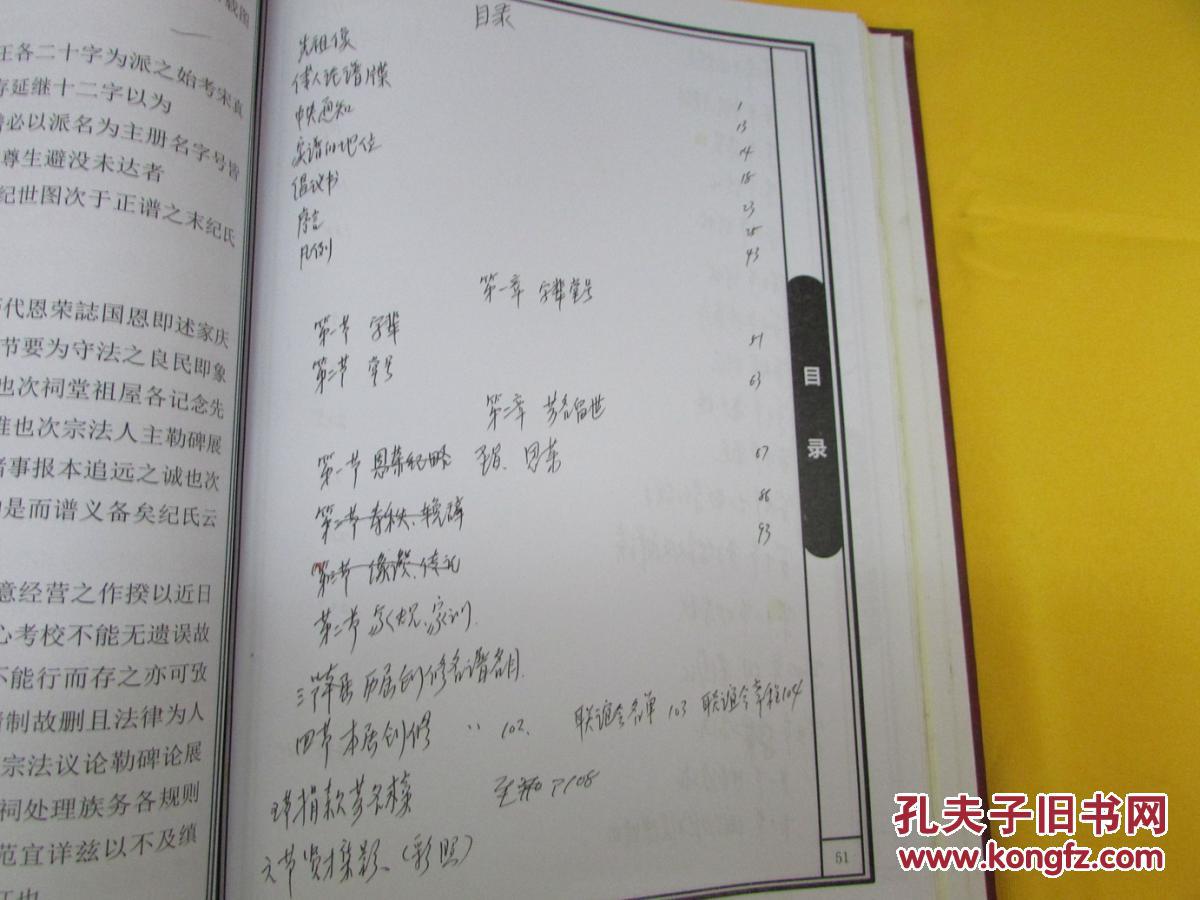 载图
王各二十字为派之始考宋真
存延继十二字以为
谱必以派名为主册名字号皆
尊生避没未达者
纪世图次于正谱之末纪氏
历代恩荣誌国恩即述家庆
节要为守法之良民即象
也次祠堂祖屋各记念先
准也次宗法人主勒碑展
者事报本追远之诚也次
是而谱义备矣纪氏云
意经营之作揆以近日
心考校不能无遗误故
不能行而存之亦可攷
制故删且法律为人
宗法议论勒碑论展
祠处理族务各规则
范宜详兹以不及缜
江也
目录
先祖像
伟人论谱牒
中央通知 1
实谱的地位 13
倡议书 14
18
序言 23
25
凡例 43
第一章 字辈堂号
第一节 字辈 51
第二节 堂号 63
第二章 芳名留世
第一节 恩荣纪略 恩荣 67
第二节 86
第三节 像赞、传记 93
第二节 家规、家训
三 历届创修名谱名目
四节 本届创修 〃 102、 联谊会名单 103 联谊会章程104
捐款芳名榜 108
六节 贤才集影、(彩照)
目录
51
孔夫子旧书网
www.kongfz.com